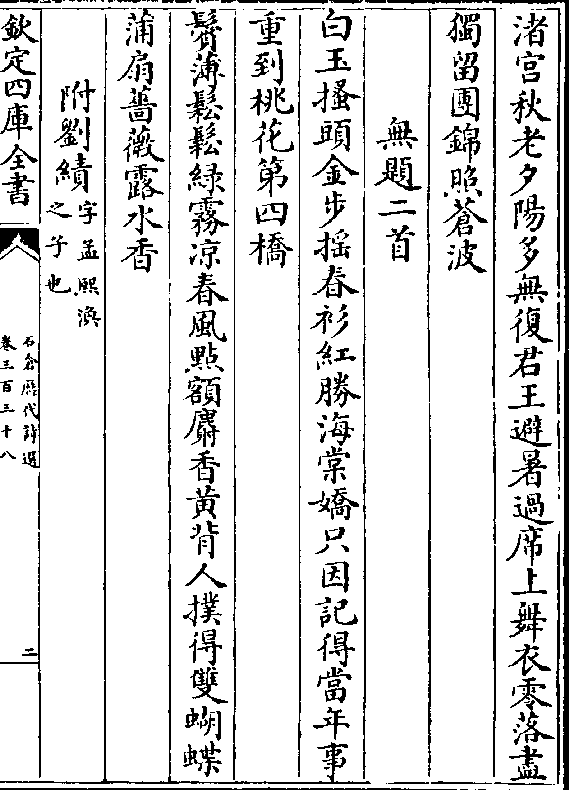 渚宫秋老夕陽多無復君王避暑過席上舞衣零落盡
獨留團錦照蒼波
無題二首
白玉搔頭金步摇春衫紅勝海棠嬌只因記得當年事
重到桃花第四橋
鬢薄鬆鬆緑霧凉春風點額麝香黄背人撲得雙蝴蝶
蒲扇薔薇露水香
附劉績字孟熙渙
之子也
欽定四庫全書
石倉歷代詩選
卷三百三十八
二